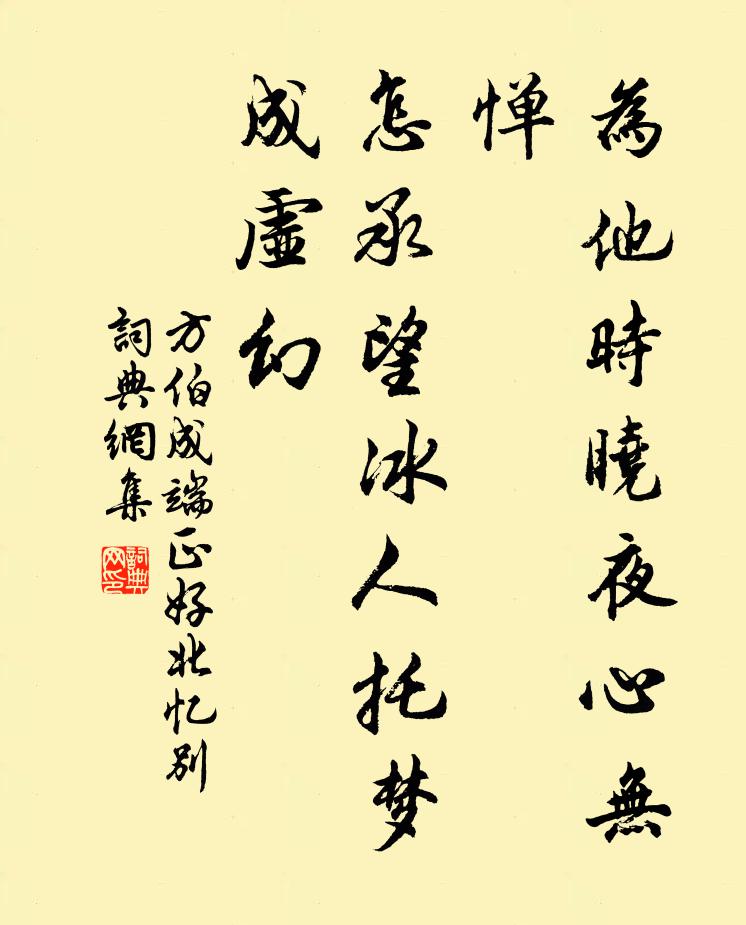 為他時曉夜心無
惮
怎承望冰人托梦
成虛幻
方伯成端正好北忆别
詞典網集
詞典网印